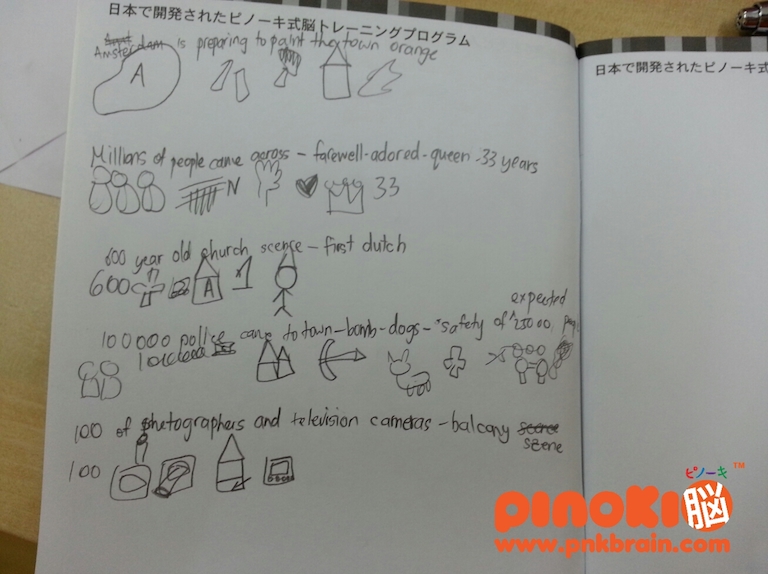 日本で開発されたピノーキ式脳トレーニングプログラム
日本で開発されたピノーキ式
Amsterdam is preparing to paint the town orange
A
Millions of people came across - farewell-adored-queen-33 years
N 33
600 year old church scence - first dutch
600 A 1
expected
100000 police came to town-bomb-dogs- safety of 25000
100 of photographers and television cameras - balcony
szene
100
ピノーキ TM
PINOKIO脳
www.pnkbrain.com